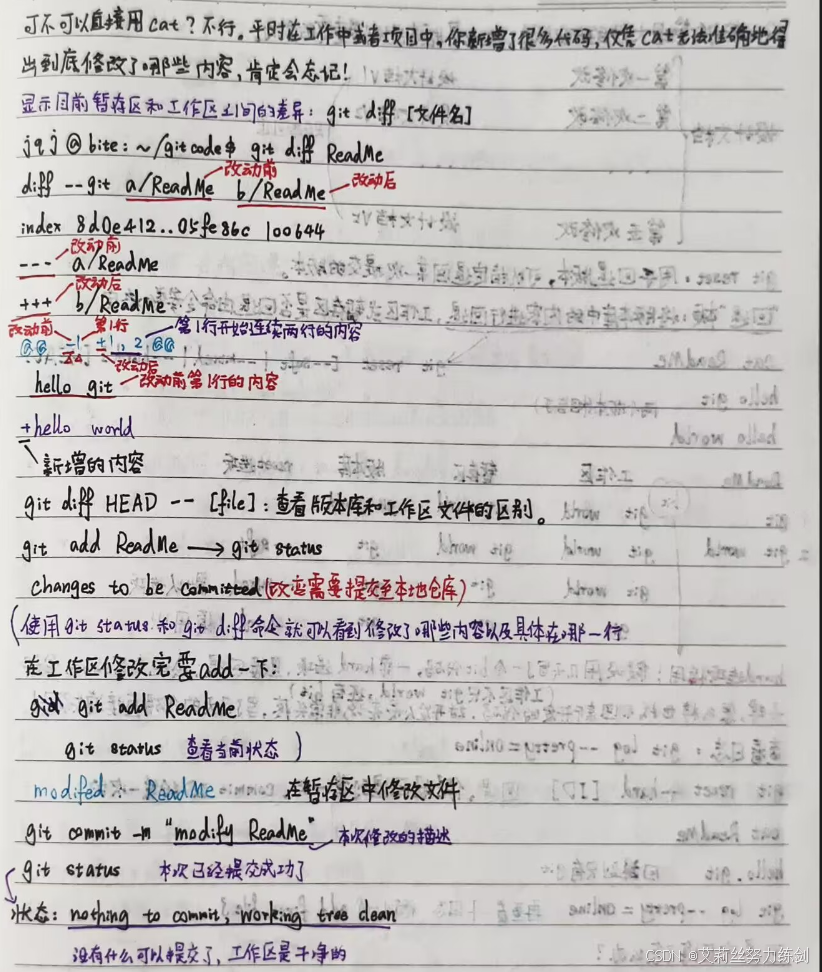 可不可以直接用cat？不行。平时在工作中或者项目中，你新增了很多代码，仅凭cat无法准确地得
出到底修改了哪些内容，肯定会忘记！
显示目前暂存区和工作区之间的差异：git diff [文件名]
jqj@bite:~/gitcode$ git diff ReadMe
改动前
diff --git a/ReadMe b/ReadMe 改动后
index 8d0e412..05fe86c 100644
改动前
--- a/ReadMe
改动后
+++ b/ReadMe
改动前 第1行 第1行开始连续两行的内容
@@ -1 +1,2 @@
改动后
hello git 改动前第1行的内容
+hello world
新增的内容
git diff HEAD -- [file]：查看版本库和工作区文件的区别。
git add ReadMe → git status
changes to be committed(改变需要提交至本地仓库)
(使用git status和git diff命令就可以看到修改了哪些内容以及具体在哪一行
在工作区修改完要add一下：
git add ReadMe
git status 查看当前状态)
modifed: ReadMe 在暂存区中修改文件
git commit -m "modify ReadMe" 本次修改的描述
git status 本次已经提交成功了
状态：nothing to commit, working tree clean
没有什么可以提交了，工作区是干净的
CSDN @艾莉丝努力练剑